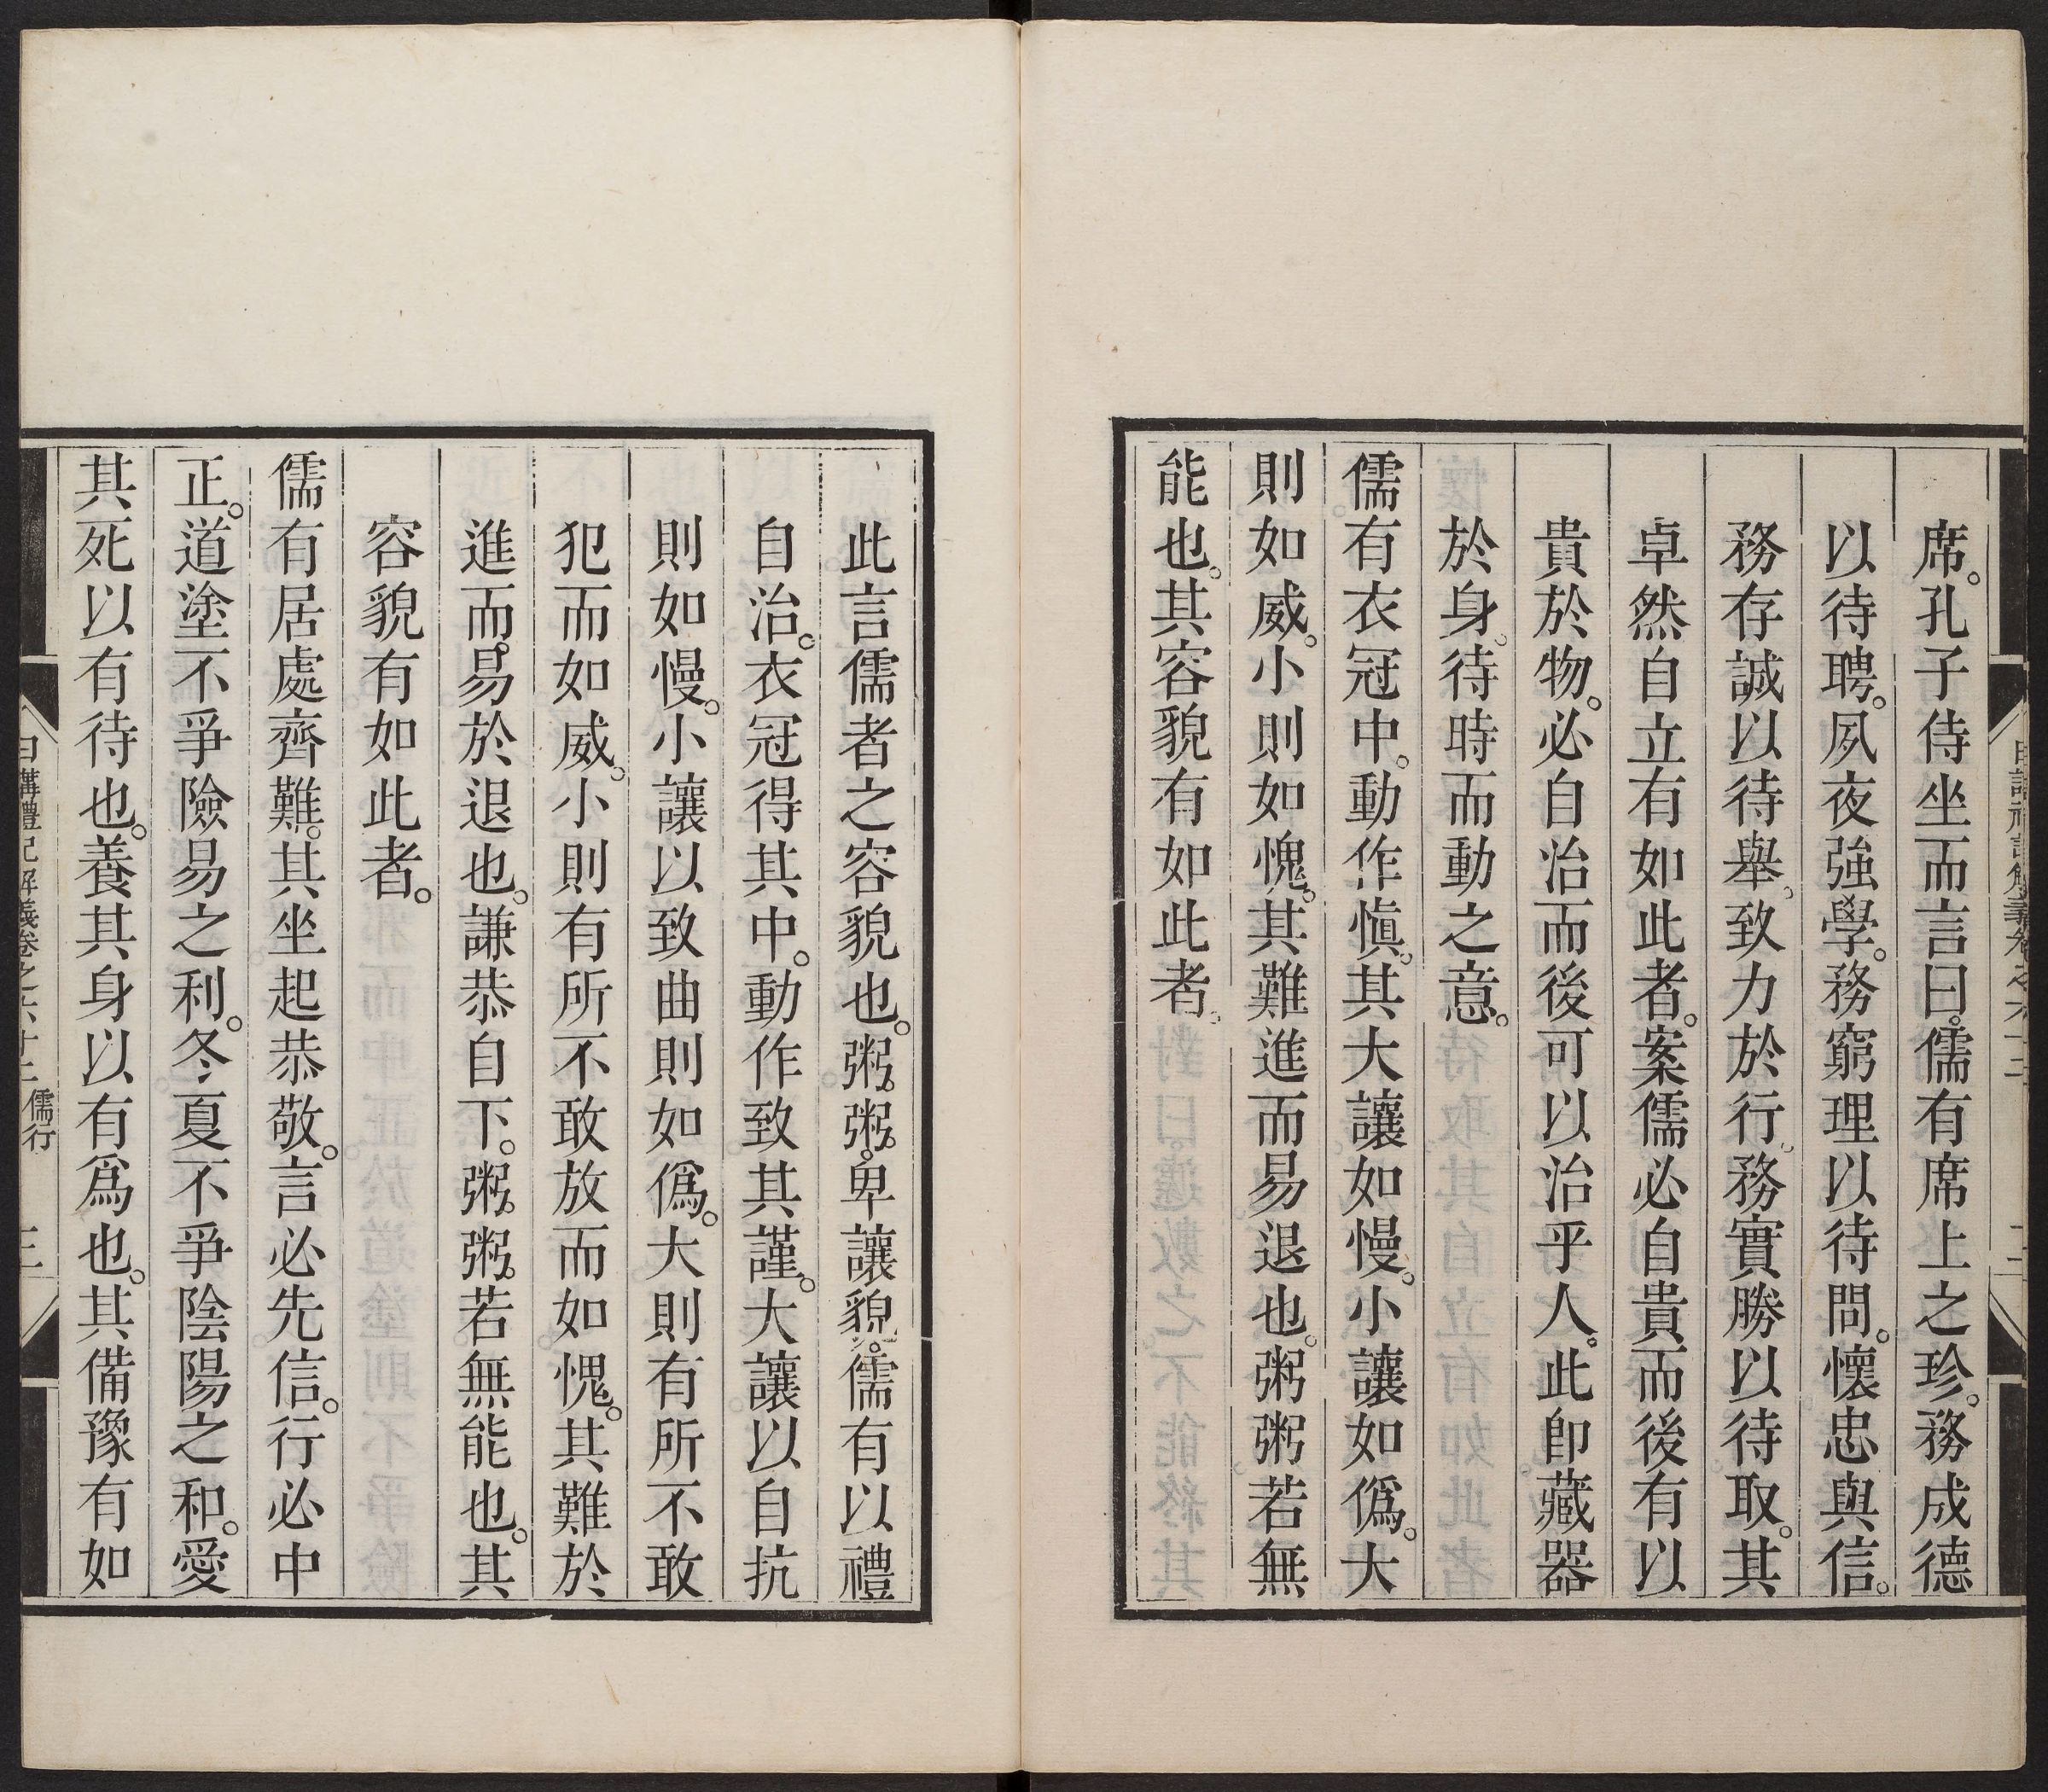 席。孔子侍坐而言曰。儒有席上之珍。務成德
以待聘。夙夜強學。務窮理以待問。懷忠與信。
務存誠以待舉。致力於行。務實勝以待取。其
卓然自立有如此者。案儒必自貴而後有以
貴於物。必自治而後可以治乎人。此卽藏器
於身。待時而動之意。
儒有衣冠中。動作愼。其大讓如慢。小讓如僞。大
則如威。小則如愧。其難進而易退也。粥粥若無
能也。其容貌有如此者。
此言儒者之容貌也。粥。粥。卑讓貌。儒有以禮
自治。衣冠得其中。動作致其謹。大讓以自抗
則如慢。小讓以致曲則如僞。大則有所不敢
犯而如威。小則有所不敢放而如愧。其難於
進而。易於退也。謙恭自下。粥。粥。若無能也。其
容貌有如此者。
儒有居處齊難。其坐起恭敬。言必先信。行必中
正。道塗不爭險易之利。冬夏不爭陰陽之和。愛
其死以有待也。養其身以有爲也。其備豫有如
日講禮記解義卷之六十二 儒行 三